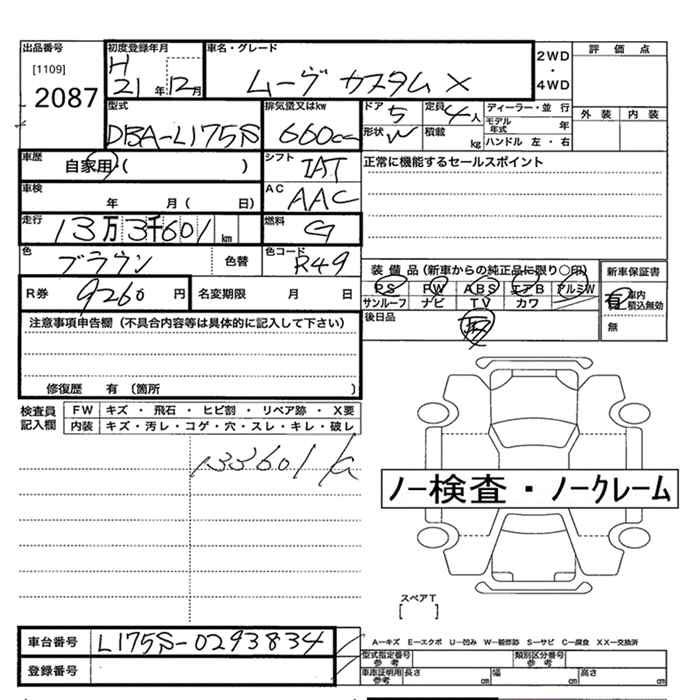 出品番号 初度登録年月 車名・グレード 評価点
[1109] H 2WD
2087 21年12月 ムーヴ カスタム X ・
4WD
型式 排気量又はkw ドア 5 定員 4人 ディーラー・並行 外装 内装
DBA-L175S 660cc 形状 W 積載 kg モデル年式 年
ハンドル 左・右
車歴 自家用 ( ) シフト IAT 正常に機能するセールスポイント
車検 年 月 ( 日) AC AAC
走行 13万3千601km 燃料 G
色 ブラウン 色替 色コード R49
装備品(新車からの純正品に限り○印) 新車保証書
R券 9260円 名変期限 月 日 PS PW ABS エアB アルミW 有 車内
サンルーフ ナビ TV カワ 積込無効
注意事項申告欄(不具合内容等は具体的に記入して下さい) 後日品 無
修復歴 有 〔箇所 〕
検査員 FW キズ・飛石・ヒビ割・リペア跡・X要
記入欄 内装 キズ・汚レ・コゲ・穴・スレ・キレ・破レ
133601
ノー検査・ノークレーム
スペアT
[ ]
車台番号 L175S-0293834 A-キズ E-エクボ U-凹み W-補修跡 S-サビ C-腐食 XX-交換済
型式指定番号 参考 類別区分番号 参考
登録番号 車庫証明用 参考 長さ cm 幅 cm 高さ cm